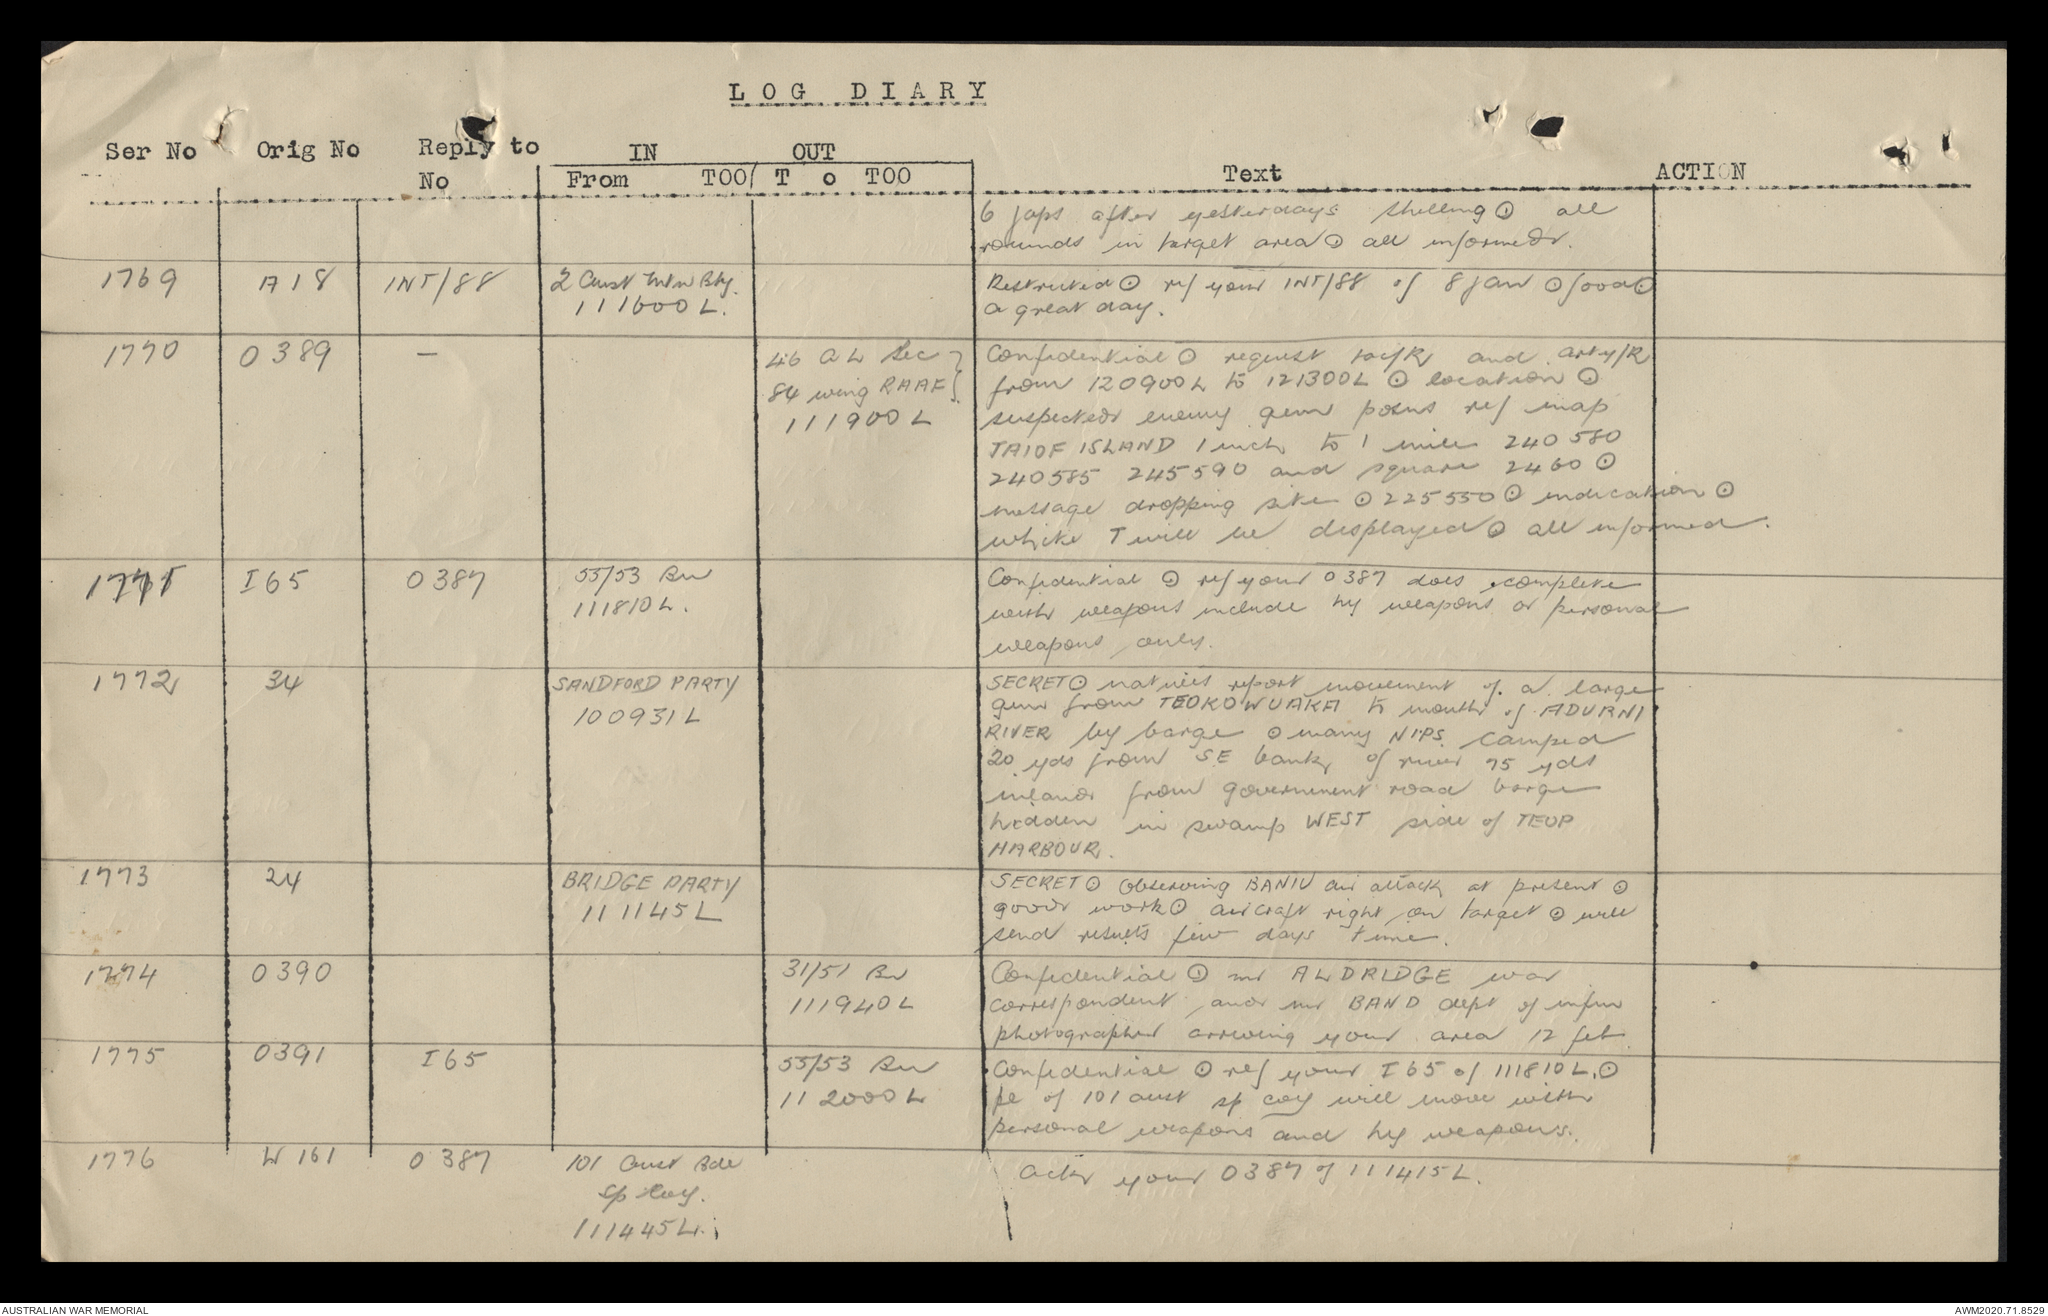 LOG DIARY
Ser No Orig No Reply to IN OUT
No From TOO T o TOO Text ACTION
6 japs after yesterdays shelling ⊙ all
rounds in target area ⊙ all informed.
1769 A18 INT/88 2 Aust Mtn Bty. Restricted ⊙ ref your INT/88 of 8 Jan ⊙ good ⊙
111600L. a great day.
1770 0389 — 46 A L Sec } Confidential ⊙ request tac/R and arty/R
84 wing RAAF } from 120900L to 121300L ⊙ location ⊙
111900L suspected enemy gun posns ref map
TAIOF ISLAND 1 inch to 1 mile 240580
240585 245590 and square 2460 ⊙
message dropping site ⊙ 225550 ⊙ indication ⊙
white T will be displayed ⊙ all informed.
1771 I65 0387 55/53 Bn Confidential ⊙ ref your 0387 does complete
111810L. with weapons include hy weapons or personal
weapons only.
1772 34 SANDFORD PARTY SECRET ⊙ natives report movement of a large
100931L gun from TEOKOWUAKA to mouth of ADURNI
RIVER by barge ⊙ many NIPS camped
20 yds from SE bank of river 75 yds
inland from government road barge
hidden in swamp WEST side of TEOP
HARBOUR.
1773 24 BRIDGE PARTY SECRET ⊙ Observing BANIU air attack at present ⊙
111145L good work ⊙ aircraft right on target ⊙ will
send results few days time.
1774 0390 31/51 Bn Confidential ⊙ mr ALDRIDGE war
111940L correspondent and mr BAND dept of infm
photographer arriving your area 12 feb
1775 0391 I65 55/53 Bn Confidential ⊙ ref your I65 of 111810L. ⊙
112000L pl of 101 aust sp coy will move with
personal weapons and hy weapons.
1776 W161 0387 101 Aust Bde ack your 0387 of 111415L.
Sp Coy.
111445L.
AUSTRALIAN WAR MEMORIAL AWM2020.71.8529